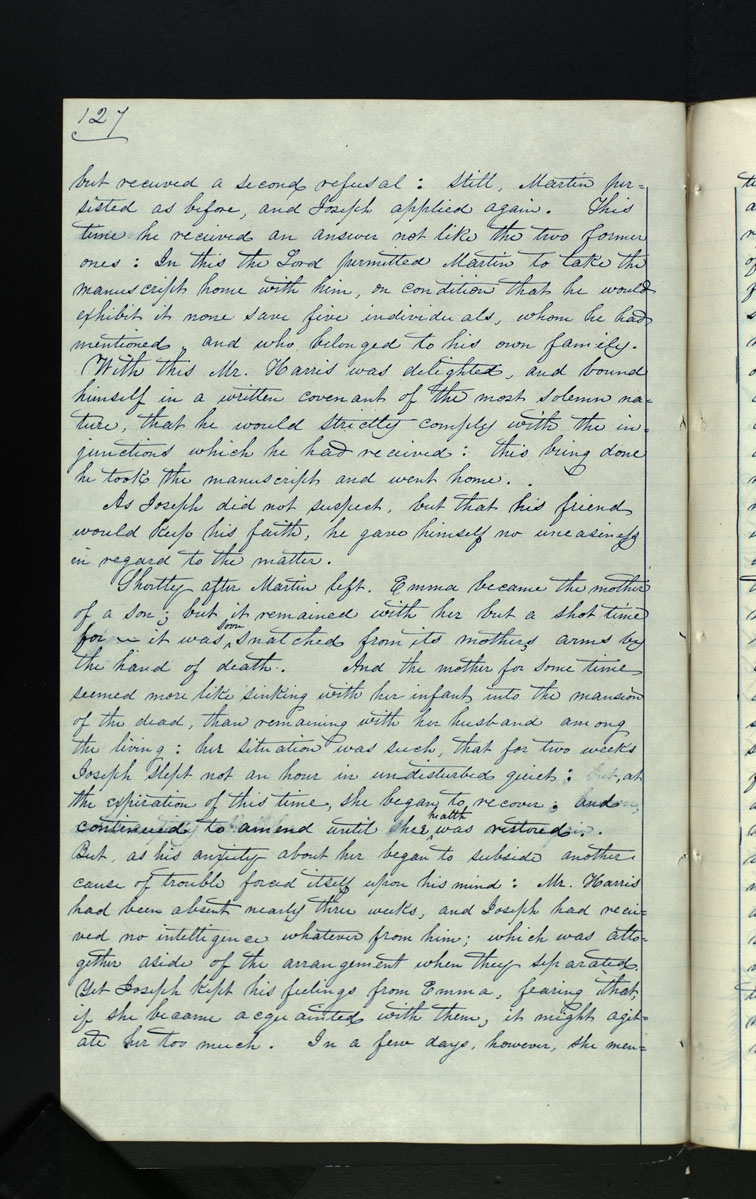 127
but received a second refusal: still, Martin per=
sisted as before, and Joseph applied again. This
time he recieved an answer not like the two former
ones: In this the Lord permitted Martin to take the
manuscript home with him, on condition that he would
exhibit it none save five individuals, whom he had
mentioned, and who belonged to his own family.
With this Mr. Harris was delighted, and bound
himself in a written covenant of the most solemn na=
ture, that he would strictly comply with the in=
junctions which he had recieved: this being done
he took the manuscript and went home.
As Joseph did not suspect, but that his friend
would keep his faith, he gave himself no uneasiness
in regard to the matter.
Shortly after Martin left. Emma became the mother
of a son; but it remained with her but a shot time
for it was soon snatched from its mothers arms by
the hand of death. And the mother for some time
seemed more like sinking with her infant into the mansion
of the dead, than remaining with her husband among
the living: her situation was such, that for two weeks
Joseph slept not an hour in undisturbed quiet: at
the expiration of this time, she began to recover; and
contenued to amend until her health was restored.
But, as his anxiety about her began to subside another
cause of trouble forced itself upon his mind: Mr. Harris
had been absent nearly three weeks, and Joseph had recie=
ved no intelligence whatever from him; which was alto=
gether aside of the arrangement when they separated.
Yet Joseph kept his feelings from Emma, fearing that,
if she became acquainted with them, it might agit=
ate her too much. In a few days, however, she men=